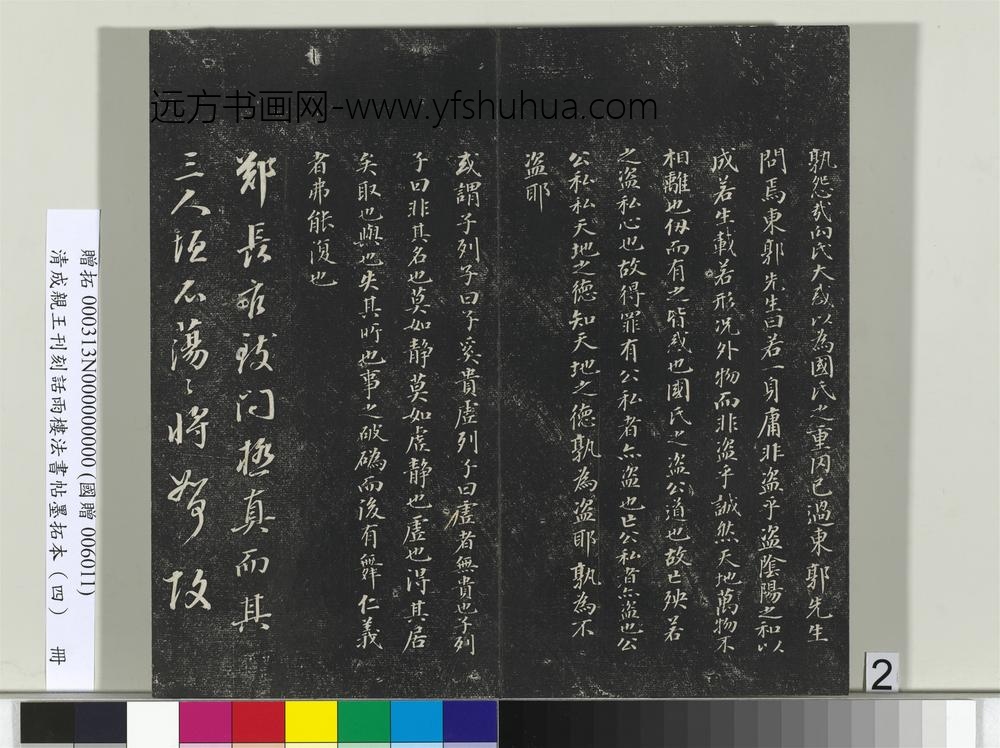 远方书画网-www.yfshuhua.com
孰怨哉向氏大惑以為國氏之重罔已過東郭先生
問焉東郭先生曰若一身庸非盜乎盜陰陽之和以
成若生載若形況外物而非盜乎誠然天地萬物不
相離也仞而有之皆惑也國氏之盜公道也故亡殃若
之盜私心也故得罪有公私者亦盜也亡公私者亦盜也公
公私私天地之德知天地之德孰為盜耶孰為不
盜耶
或謂子列子曰子奚貴虛列子曰虛者無貴也子列
子曰非其名也莫如靜莫如虛靜也虛也得其居
矣取也與也失其所也事之破䃣而後有舞仁義
者弗能復也
鄭長
門極真而其
三人
蕩〻將
故
贈拓 000313N000000000(國贈 006011)
清成親王刊刻話雨樓法書帖墨拓本(四) 冊
2